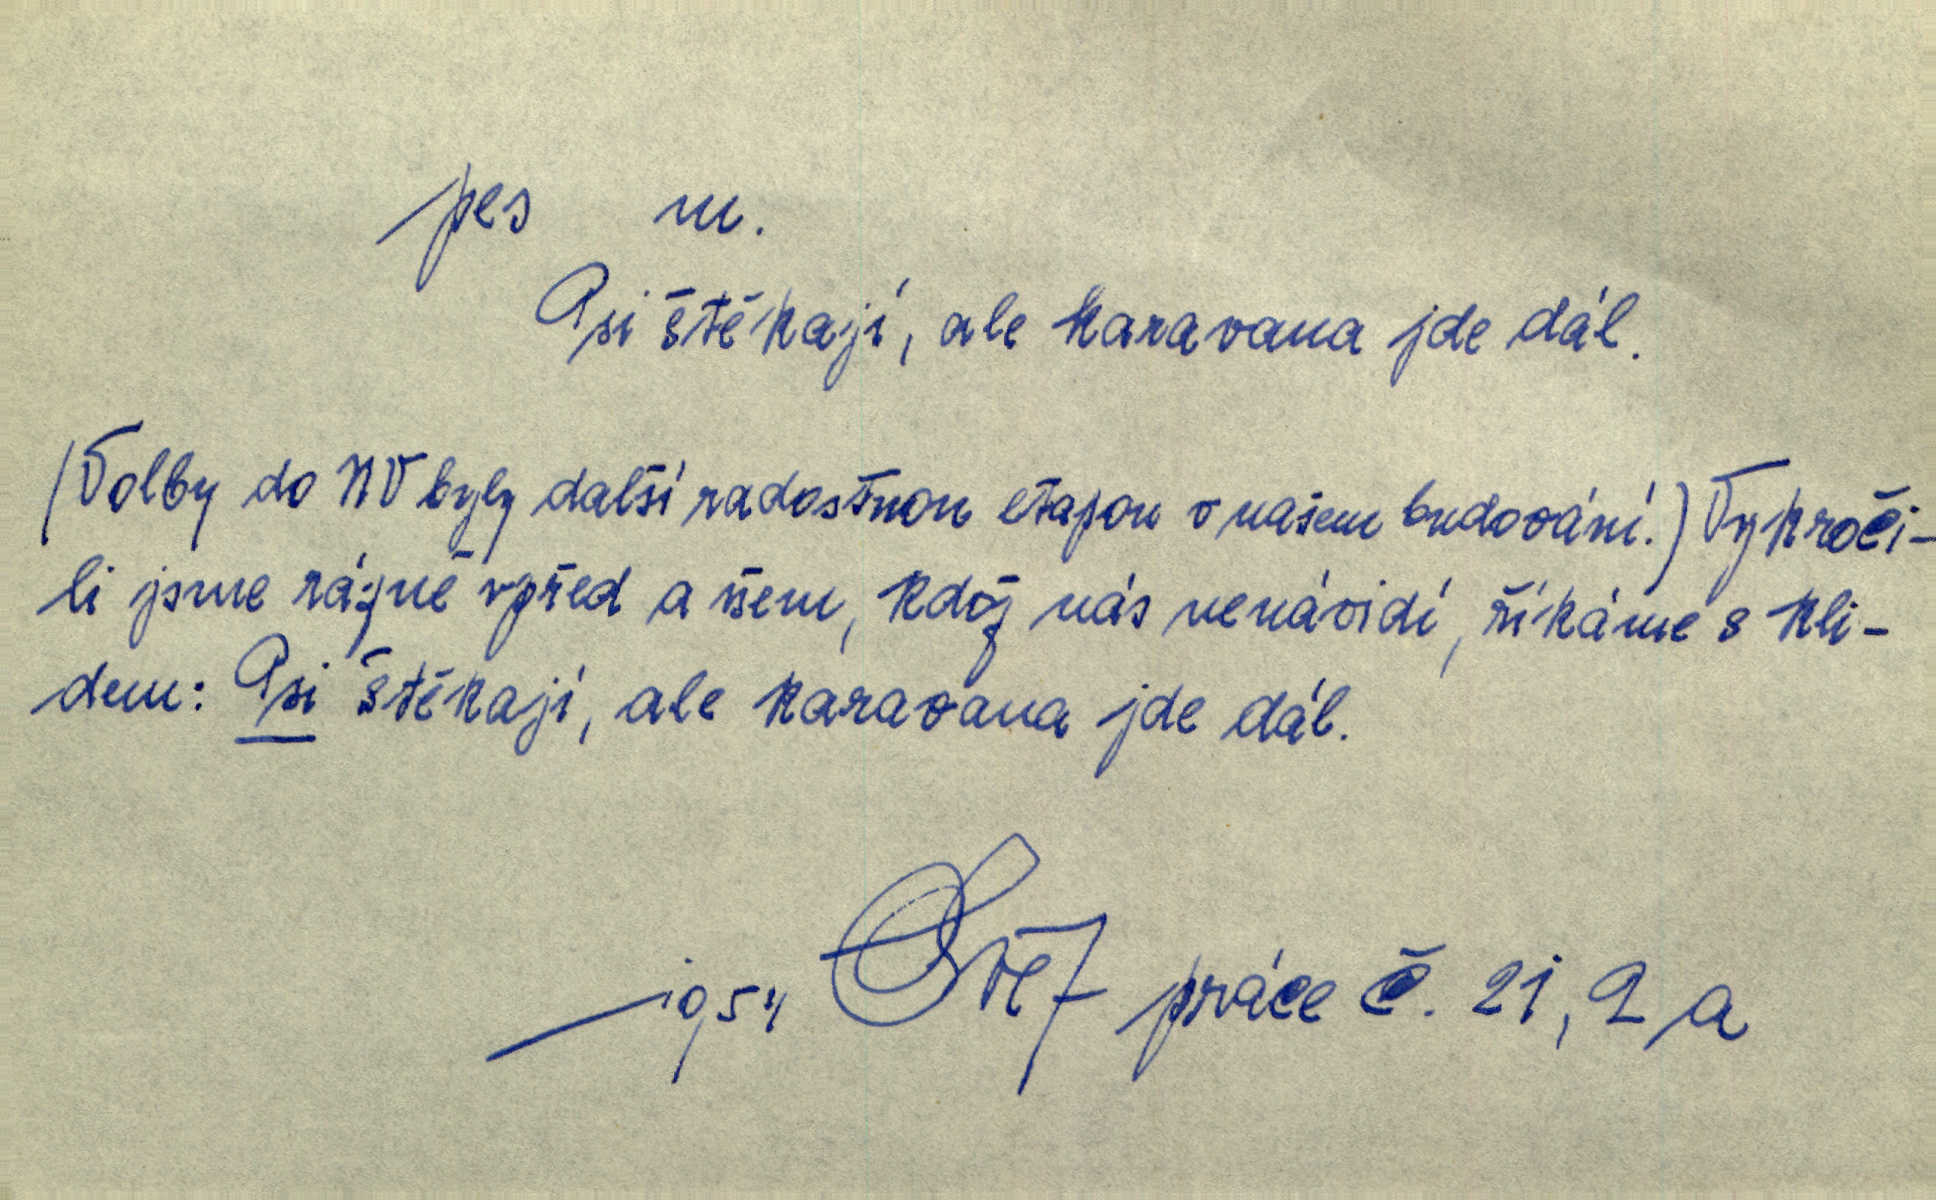 pes m.
Psi štěkají, ale karavana jde dál.
(Volby do NV byly další radostnou etapou v našem budování.) Vykroči-
li jsme rázně vpřed a všem, kdož nás nenávidí, říkáme s kli-
dem: Psi štěkají, ale karavana jde dál.
1954 práce č. 21, 2 a